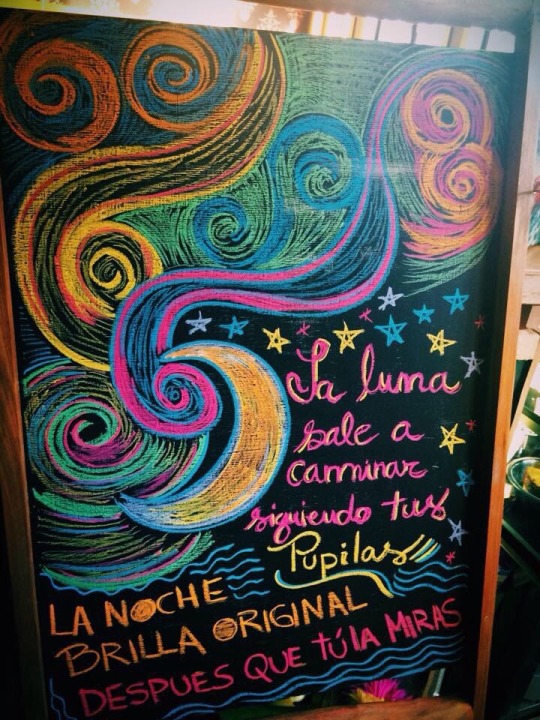 La luna
sale a
caminar
siguiendo tus
Pupilas
LA NOCHE
BRILLA ORIGINAL
DESPUES QUE TÚ LA MIRAS